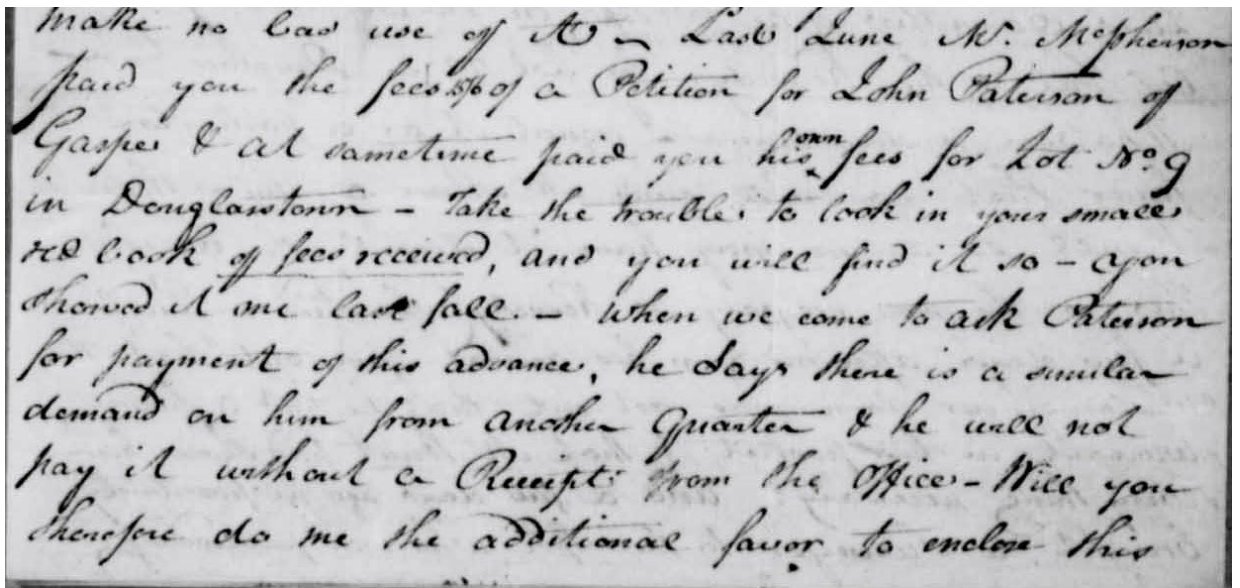 make no bad use of it – Last June Mr. McPherson
paid you the fees of a Petition for John Paterson of
Gaspe & at sametime paid you his own fees for Lot No. 9
in Douglasstown – Take the trouble to look in your small
red book of fees received, and you will find it so – you
showed it me last fall – when we come to ask Paterson
for payment of this advance, he Says there is a similar
demand on him from another Quarter & he will not
pay it without a Receipt from the Office – Will you
therefore do me the additional favor to enclose this